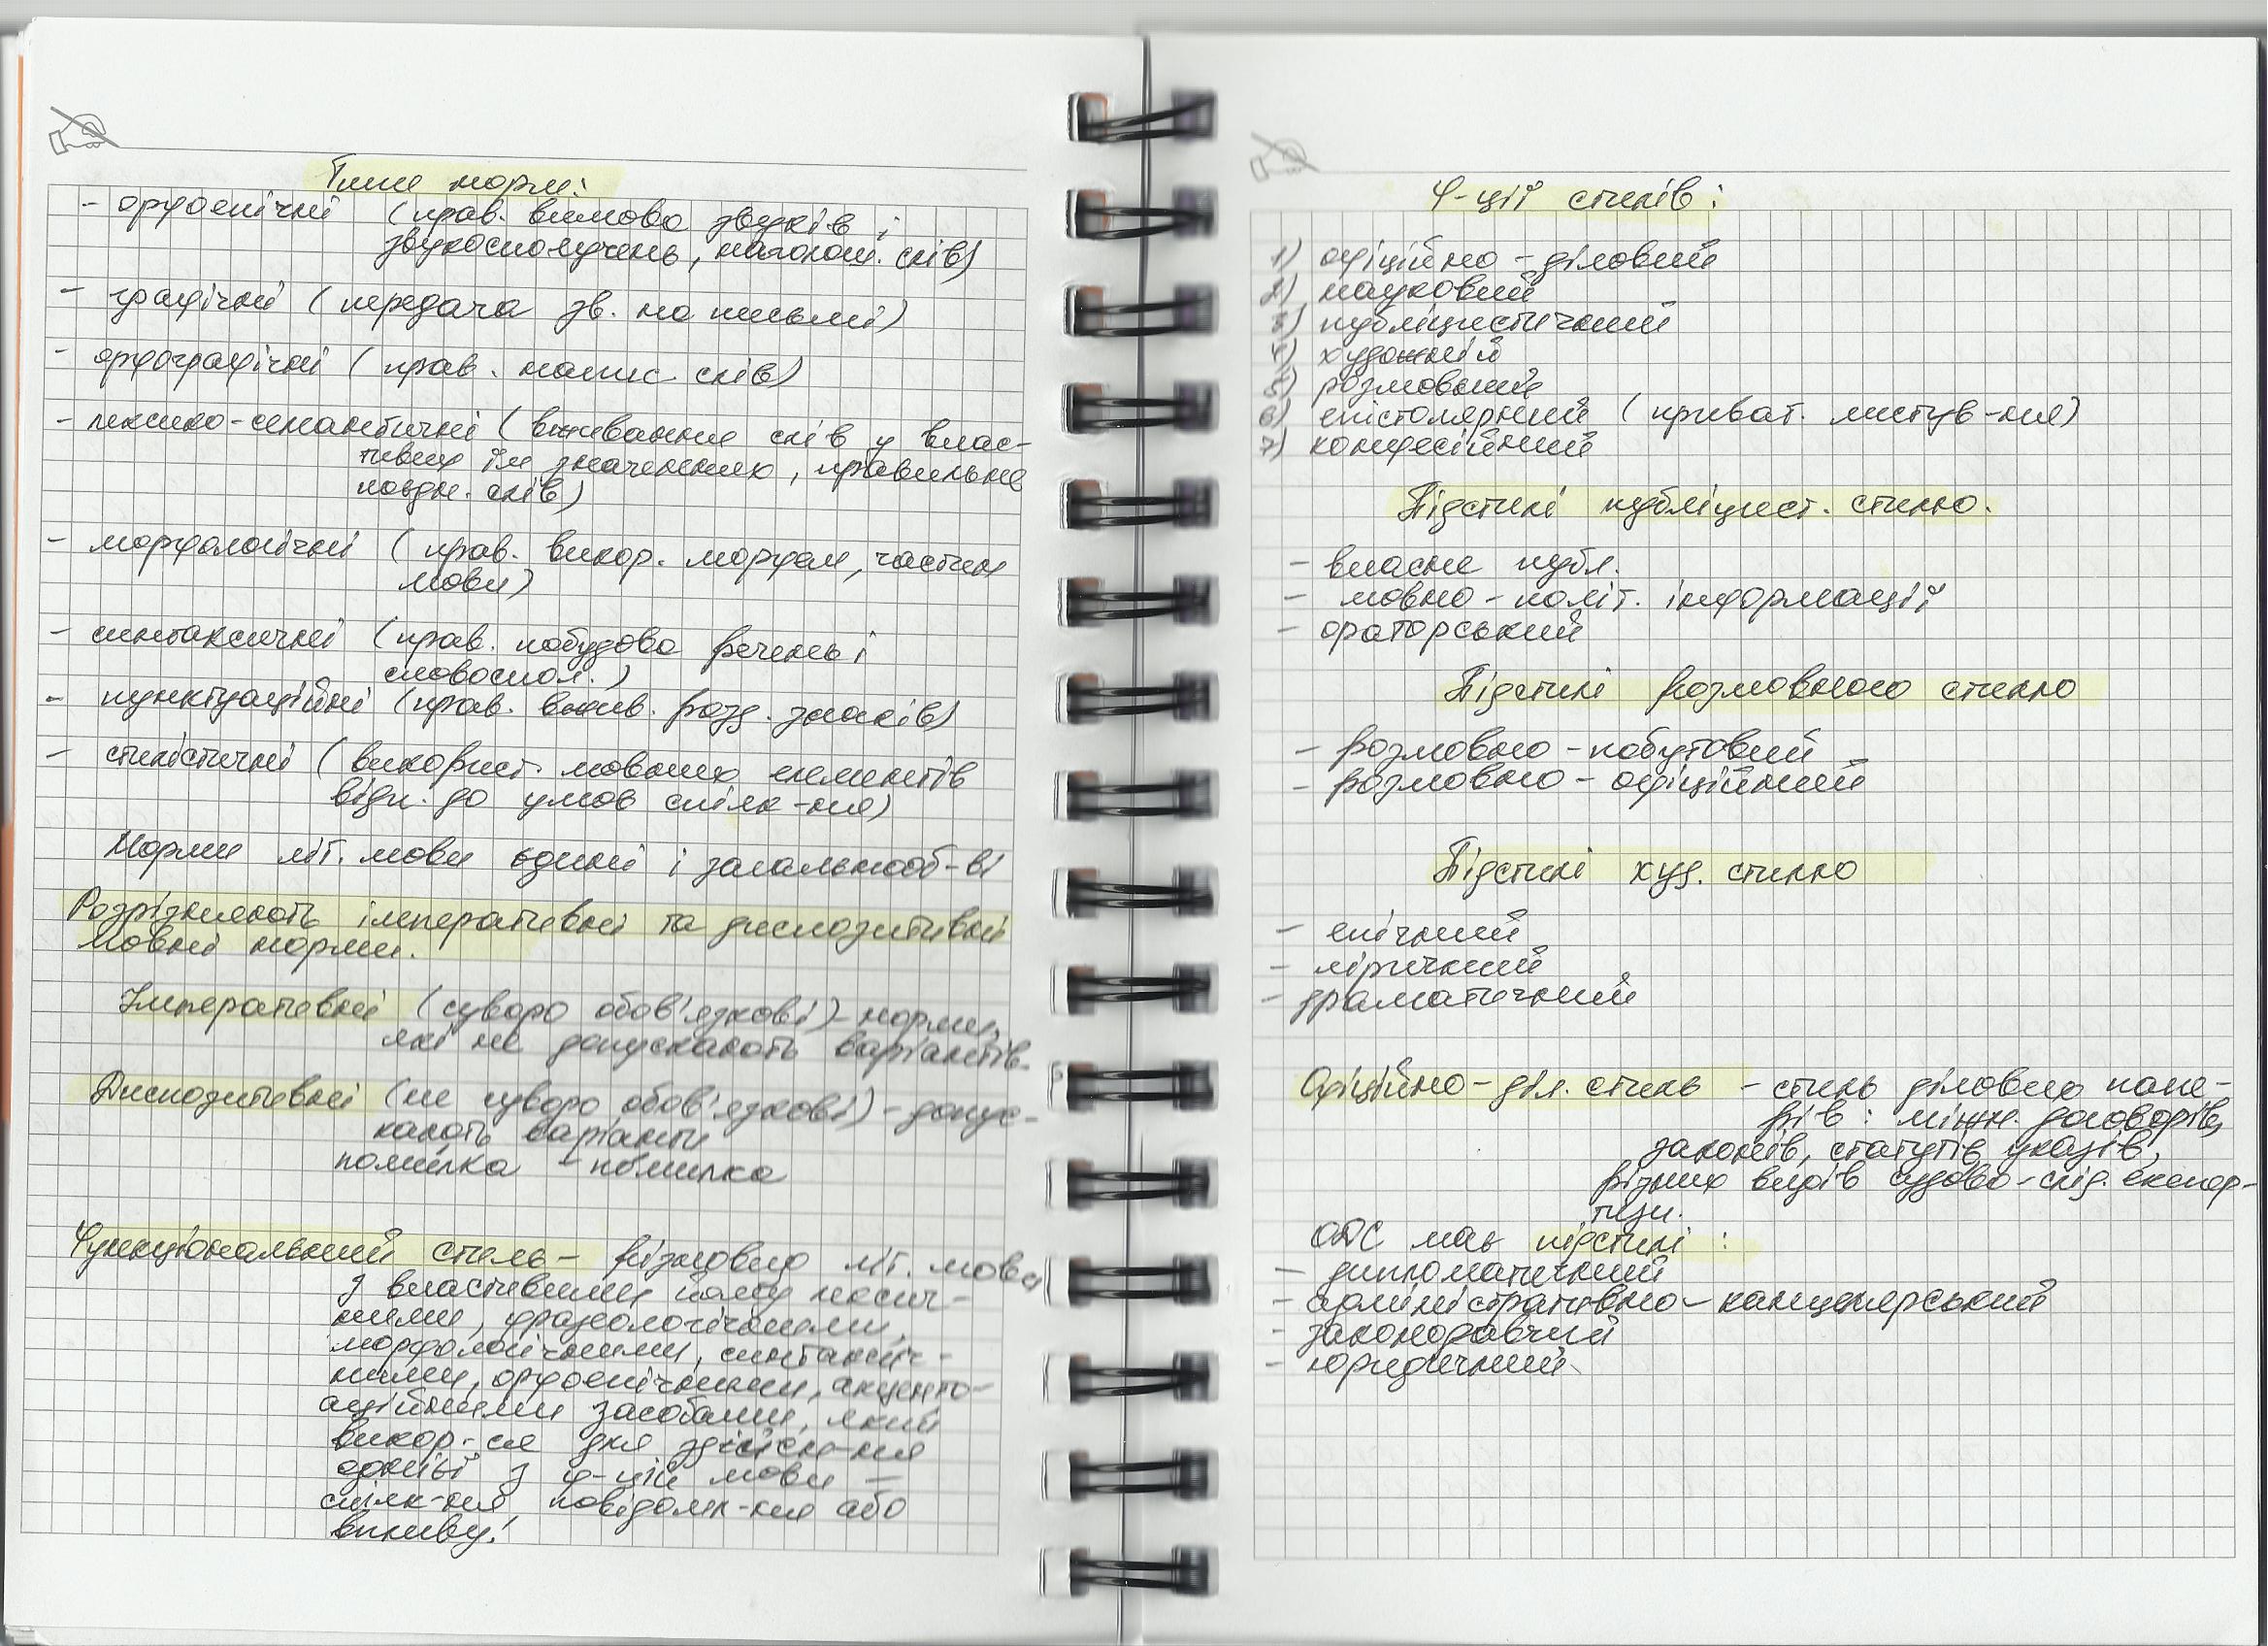 Типи норм:
- орфоепічні (прав. вимова звуків і
звукосполучень, наголош. слів)
- графічні (передача зв. на письмі)
- орфографічні (прав. напис. слів)
- лексико-семантичні (вживання слів у влас-
тивих їм значеннях, правильне
поєдн. слів)
- морфологічні (прав. викор. морфем, частин
мови)
- синтаксичні (прав. побудова речень і
словоспол.)
- пунктуаційні (прав. вжив. розд. знаків)
- стилістичні (використ. мовних елементів
відп. до умов спілк-ня)
Норми літ. мови єдині і загальнооб-ві
Розрізняють імперативні та диспозитивні
мовні норми.
Імперативні (суворо обов'язкові) - норми,
які не допускають варіантів.
Диспозитивні (не суворо обов'язкові) - допус-
кають варіанти
помилка - помилка
Функціональний стиль - різновид літ. мови
з властивими йому лексич-
ними, фразеологічними,
морфологічними, синтаксич-
ними, орфоепічними, акценту-
аційними засобами, який
викор-ся для здійсн-ня
однієї з ф-цій мови -
спілк-ня, повідомл-ня або
впливу!
Ф-ції стилів:
1) офіційно - діловий
2) науковий
3) публіцистичний
4) художній
5) розмовний
6) епістолярний (приват. листув-ня)
7) конфесійний
Підстилі публіцист. стилю.
- власне публ.
- мовно - політ. інформації
- ораторський
Підстилі розмовного стилю
- розмовно - побутовий
- розмовно - офіційний
Підстилі худ. стилю
- епічний
- ліричний
- драматичний
Офіційно - діл. стиль - стиль ділових папе-
рів: міжн. договорів,
законів, статутів указів,
різних видів судово - слід. експер-
тизи.
ОДС має підстилі:
- дипломатичний
- адміністративно - канцелярський
- законодавчий
- юридичний